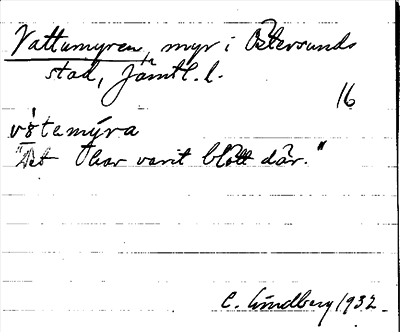 Vattumyren, myr i Östersunds
stad, Jämtl. l.
16
våtemýra
"Det har varit blött där."
C. Lindberg 1932.